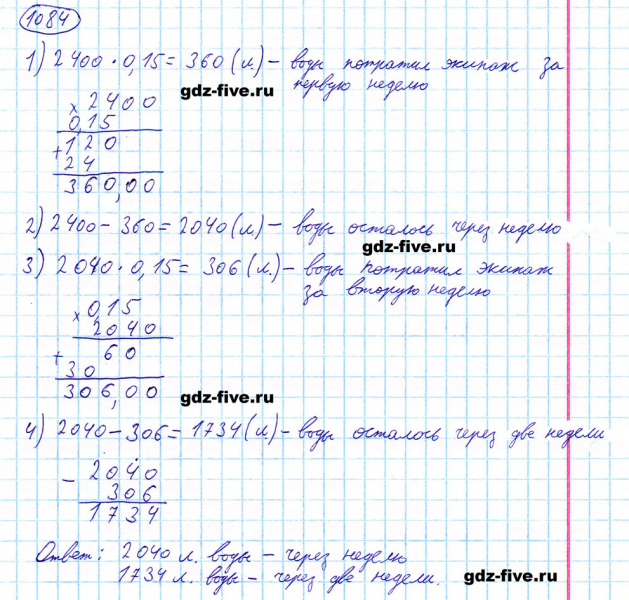 1084
1) 2400 · 0,15 = 360 (л) – воды потратил экипаж за
первую неделю
gdz-five.ru
× 2400
0,15
+ 120
24
360,00
2) 2400 – 360 = 2040 (л) – воды осталось через неделю
gdz-five.ru
3) 2040 · 0,15 = 306 (л.) – воды потратил экипаж
за вторую неделю
× 0,15
2040
+ 60
30
306,00
gdz-five.ru
4) 2040 – 306 = 1734 (л) – воды осталось через две недели
– 2040
306
1734
Ответ: 2040 л. воды – через неделю
1734 л. воды – через две недели.
gdz-five.ru